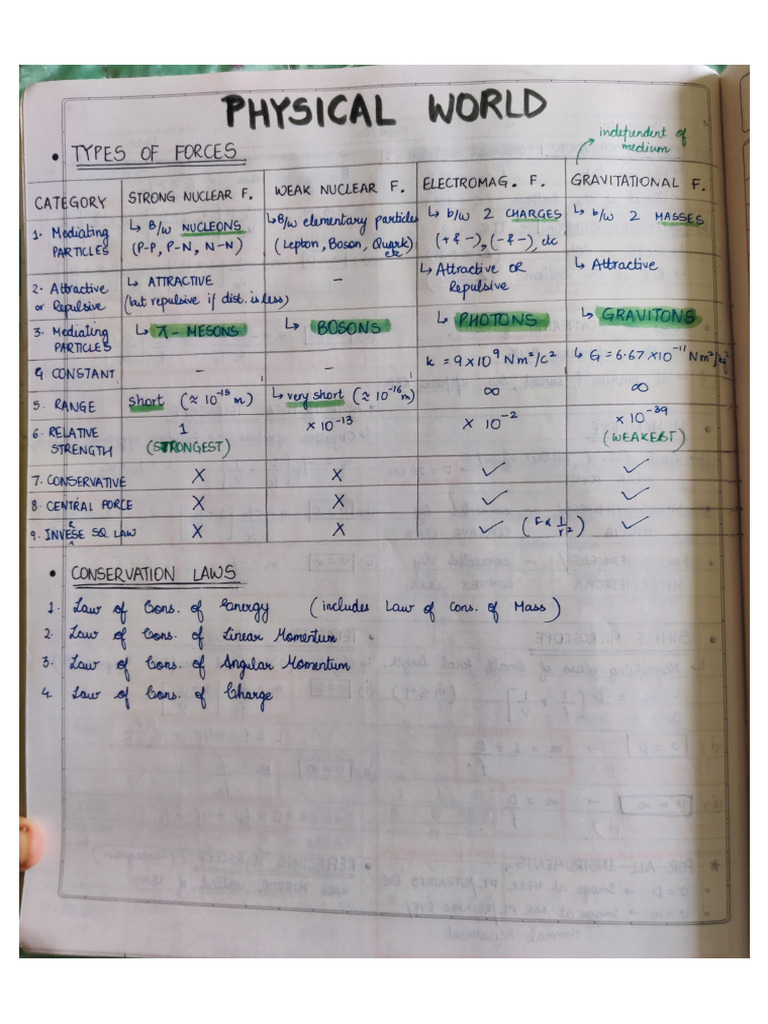 PHYSICAL WORLD
independent of
medium
• TYPES OF FORCES
CATEGORY STRONG NUCLEAR F. WEAK NUCLEAR F. ELECTROMAG. F. GRAVITATIONAL F.
1. Mediating ↳ B/w NUCLEONS ↳ B/w elementary particles ↳ b/w 2 CHARGES ↳ b/w 2 MASSES
PARTICLES (P-P, P-N, N-N) (Lepton, Boson, Quark etc (+ & -), (- & -), etc
2. Attractive ↳ ATTRACTIVE - ↳ Attractive OR ↳ Attractive
or Repulsive (but repulsive if dist. is less) Repulsive
3. Mediating ↳ π-MESONS ↳ BOSONS ↳ PHOTONS ↳ GRAVITONS
PARTICLES
4 CONSTANT - - k = 9×10⁹ Nm²/c² ↳ G = 6.67×10⁻¹¹ Nm²/kg²
5. RANGE short (≈ 10⁻¹⁵ m) ↳ very short (≈ 10⁻¹⁶ m) ∞ ∞
6. RELATIVE 1 × 10⁻¹³ × 10⁻² × 10⁻³⁹
STRENGTH (STRONGEST) (WEAKEST)
7. CONSERVATIVE X X ✓ ✓
8. CENTRAL FORCE X X ✓ ✓
9. INVERSE SQ. LAW X X ✓ (F ∝ 1/r²) ✓
• CONSERVATION LAWS
1. Law of Cons. of Energy (includes Law of Cons. of Mass)
2. Law of Cons. of Linear Momentum
3. Law of Cons. of Angular Momentum
4. Law of Cons. of Charge